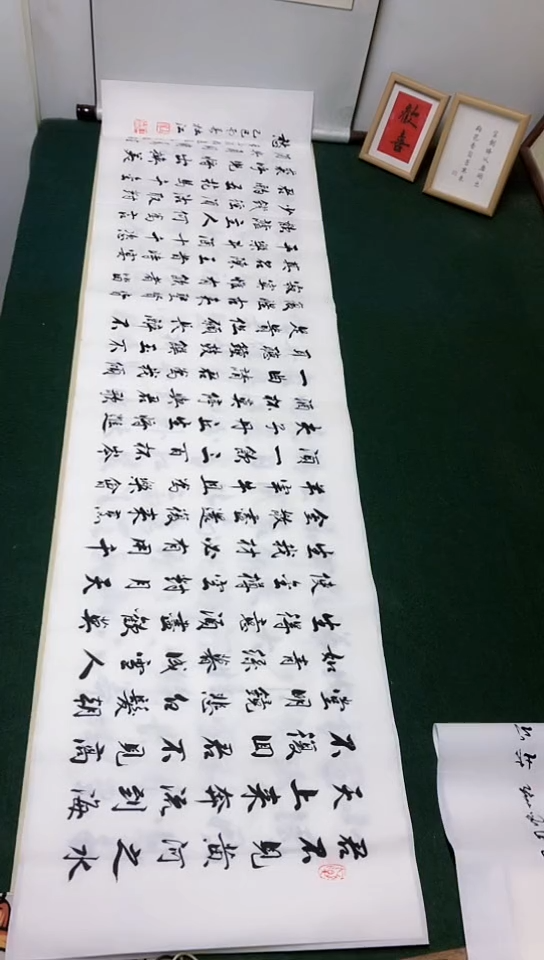 君不見黃河之水
天上來奔流到海
不復回君不見高
堂明鏡悲白髮朝
如青絲暮成雪人
生得意須盡歡莫
使金樽空對月天
生我材必有用千
金散盡還復來烹
羊宰牛且為樂會
須一飲三百杯岑
夫子丹丘生將進
酒杯莫停與君歌
一曲請君為我傾
耳聽鐘鼓饌玉不
足貴但願長醉不
古來聖賢皆
寂寞惟有飲者留
名陳王昔時宴
平樂斗酒十千恣
歡謔主人何為言
少錢徑須沽取對
君酌五花馬千金
裘呼兒將出換美
愁
乙巳
歡喜